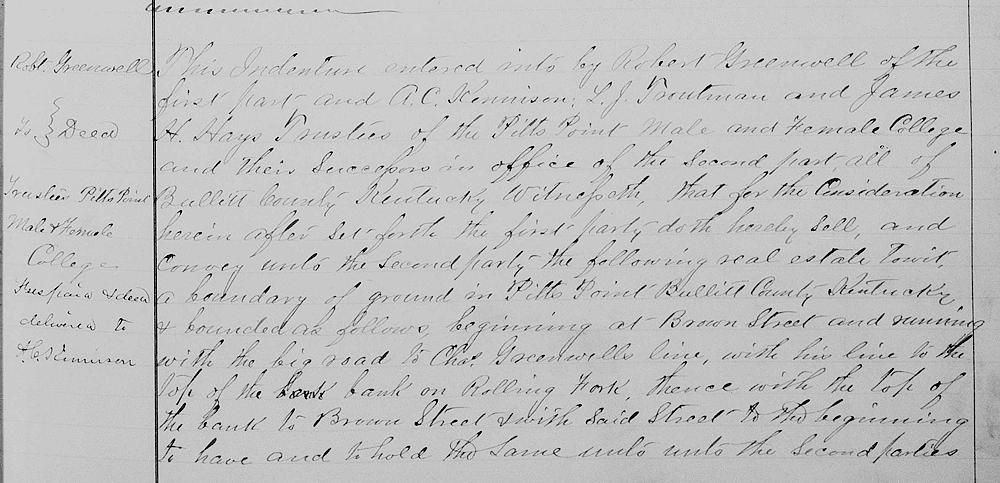 Robt. Greenwell
To } Deed
Trustees Pitts Point
Male & Female
College
Fees paid & deed
delivered to
A C Kennison
This Indenture entered into by Robert Greenwell of the
first part and A.C. Kennison, L.J. Troutman and James
H. Hays Trustees of the Pitts Point Male and Female College
and their Successors in office of the second part all of
Bullitt County Kentucky Witnesseth, that for the Consideration
herein after set forth the first party doth hereby sell, and
Convey unto the second party the following real estate towit,
a boundary of ground in Pitts Point Bullitt County Kentucky
& bounded as follows, beginning at Brown Street and running
with the big road to Chas. Greenwells line, with his line to the
top of the bank on Rolling Fork, thence with the top of
the bank to Brown Street & with said Street to the beginning
to have and to hold the same unto unto the second parties